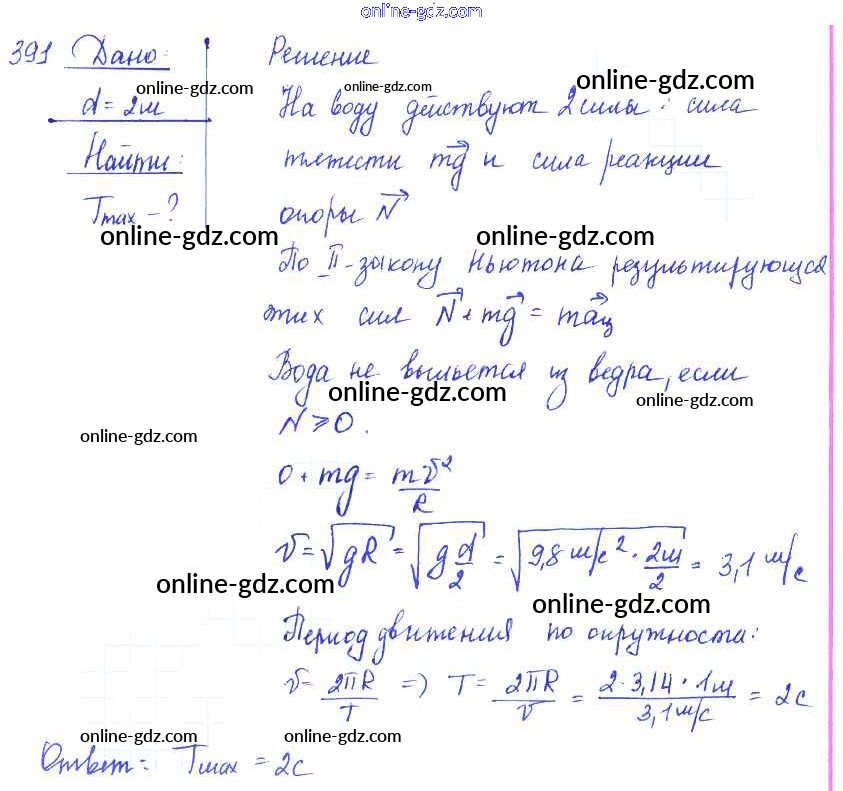 online-gdz.com
391 Дано: Решение
online-gdz.com online-gdz.com online-gdz.com
d = 2м На воду действуют 2 силы: сила
Найти: тяжести mg⃗ и сила реакции
Tmax - ? опоры N⃗
online-gdz.com online-gdz.com
По II-закону Ньютона результирующая
этих сил N⃗ + mg⃗ = ma⃗ц
Вода не выльется из ведра, если
online-gdz.com online-gdz.com
N ≥ 0.
online-gdz.com
0 + mg = mv²/R
v = √gR = √(g d/2) = √(9,8 м/с² · 2м/2) = 3,1 м/с
online-gdz.com
online-gdz.com
Период движения по окружности:
v = 2πR/T => T = 2πR/v = 2·3,14·1м/3,1 м/с = 2с
online-gdz.com online-gdz.com online-gdz.com
Ответ: Tmax = 2с